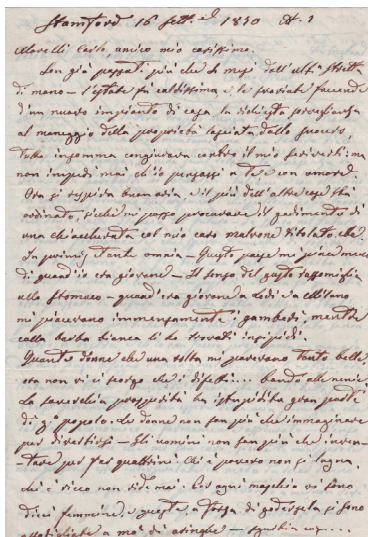 Stamford 16 Sett.
Morelli Carlo, amico mio carissimo.
Son già passati più che 2 mesi dall'
di mano – l'estate fu caldissima e le svariate faccende
d'un nuovo impianto di casa, la richiesta sorveglianza
al maneggio della proprietà lasciata dallo suocero
Tutto insomma congiurava contro il mio scriverti: ma
non impedì mai ch'io pensassi a te con amore.
Ora si respira buon aria, e il più dell'altre cose sta
ordinato, sicché mi posso procurare il godimento di
una chiacchierata col mio caro
In primis tante omnia – Questo paese mi piaceva
di quand'io era giovane – Il senso del gusto rassomiglia
allo stomaco – quand'era giovane a Lodi e a Milano
mi piacevano immensamente i gamberi, mentre
colla barba bianca li ho trovati insipidi
Quante donne che una volta mi parevano tanto belle
ora non vi ci scorgo che i difetti... bando alle nenie.
La soverchia prosperità ha istupidita gran parte
di popolo. Le donne non san più che immaginare
per divertirsi – Gli uomini non san più che inven-
tare per far quattrini. Chi è povero non si lagna,
chi è ricco non ride mai. Per ogni maschio vi sono
dieci femmine, e queste, a forza di si sono
assottigliate a mo' di